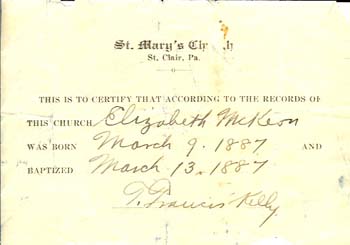 St. Mary's Ch h
St. Clair, Pa.
THIS IS TO CERTIFY THAT ACCORDING TO THE RECORDS OF
THIS CHURCH Elizabeth McKeon
WAS BORN March 9. 1887 AND
BAPTIZED March 13. 1887
T. Francis Kelly